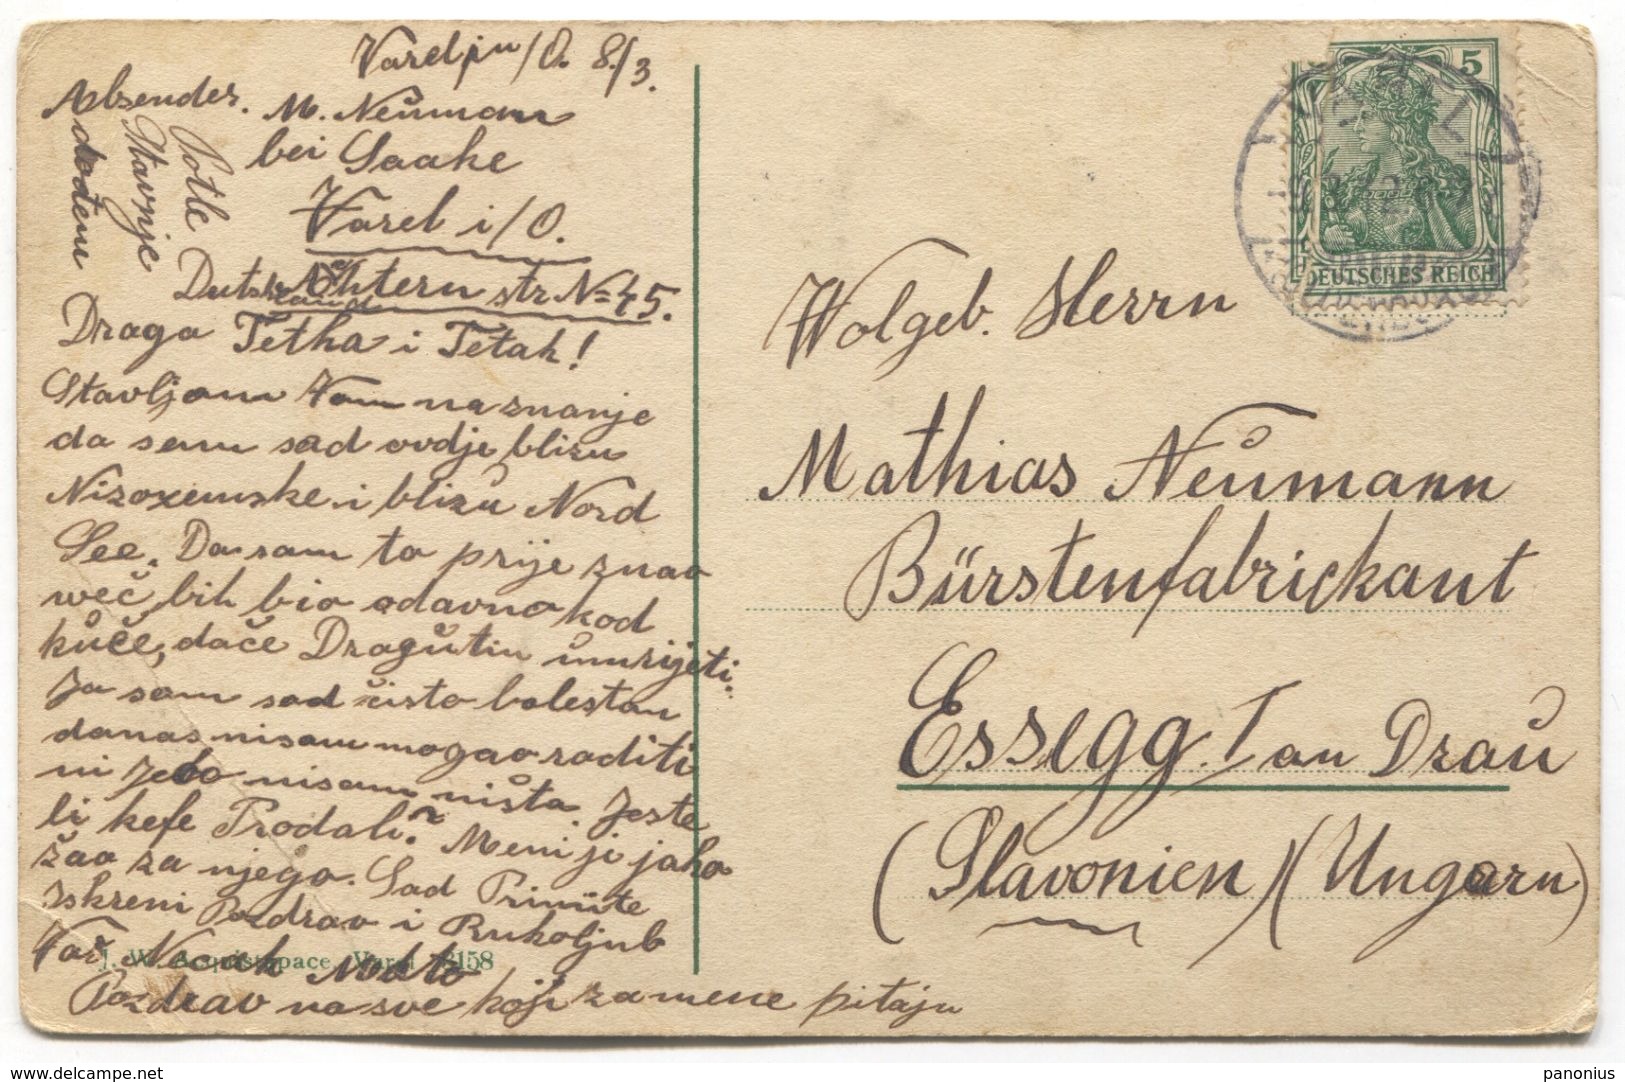 Varel in /O. 8./3.
Absender. M. Neŭmann
bei Saake
Varel i/O.
Achtern str № 45.
Draga Tetka i Tetak!
Stavljam Vam na znanje
da sam sad ovdje blizu
Nizozemske i blizu Nord
See. Da sam to prije znao
već bih bio odavno kod
kuće, dače Dragŭtin ŭmrijeti.
Ja sam sad čisto bolestan
danas nisam mogao raditi
ni jeo nisam ništa. Jeste
li kefe Prodali? Meni je jako
žao za njega. Sad Primite
Iskreni Pozdrav i Rukoljub
Vaš Nećak Mato
Pozdrav na sve koji za mene pitaju
Potle
Stavnje
dođem
J. W. Acquistapace, Varel 8158
5
DEUTSCHES REICH
Wolgeb. Herrn
Mathias Neŭmann
Bürstenfabrickant
Essegg. I an Draŭ
(Slavonien) (Ungarn)
delcampe.net
panonius